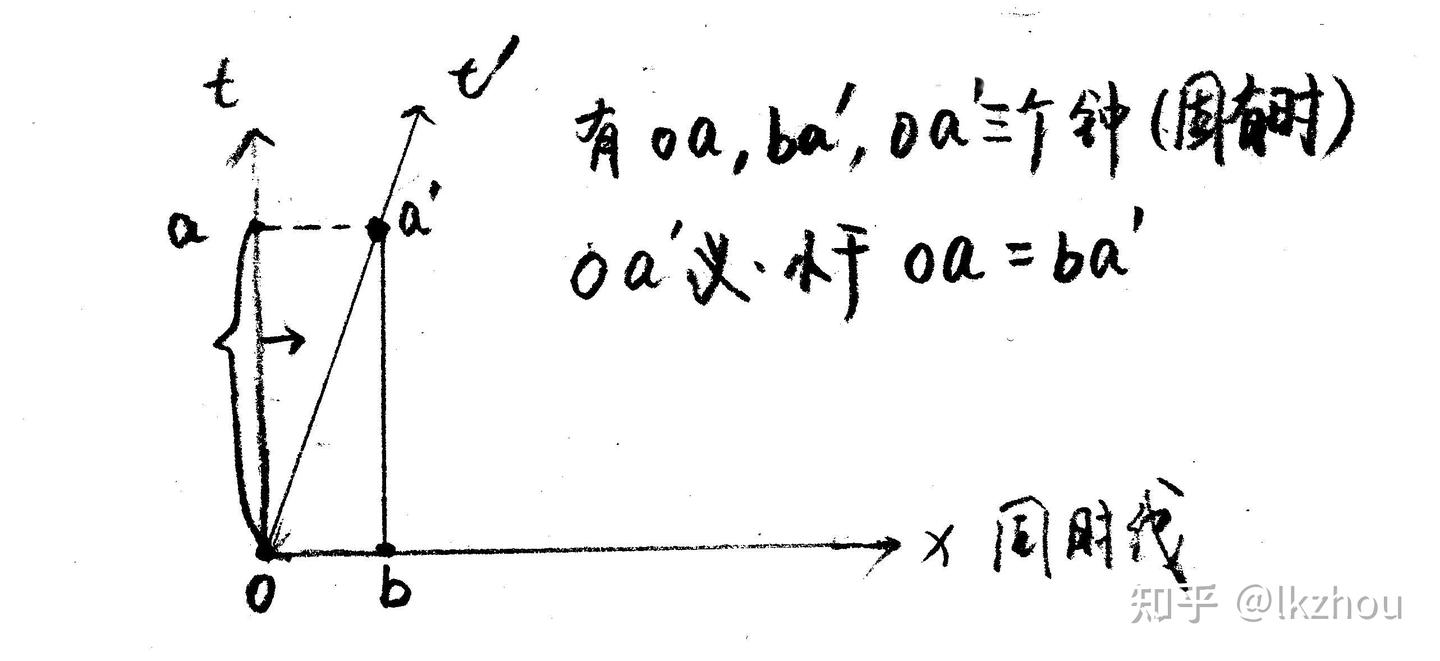 t
t′
有 oa, ba′, oa′三个钟 (固有时)
a
a′
oa′ 小于 oa = ba′
x 同时
o
b
知乎 @lkzhou